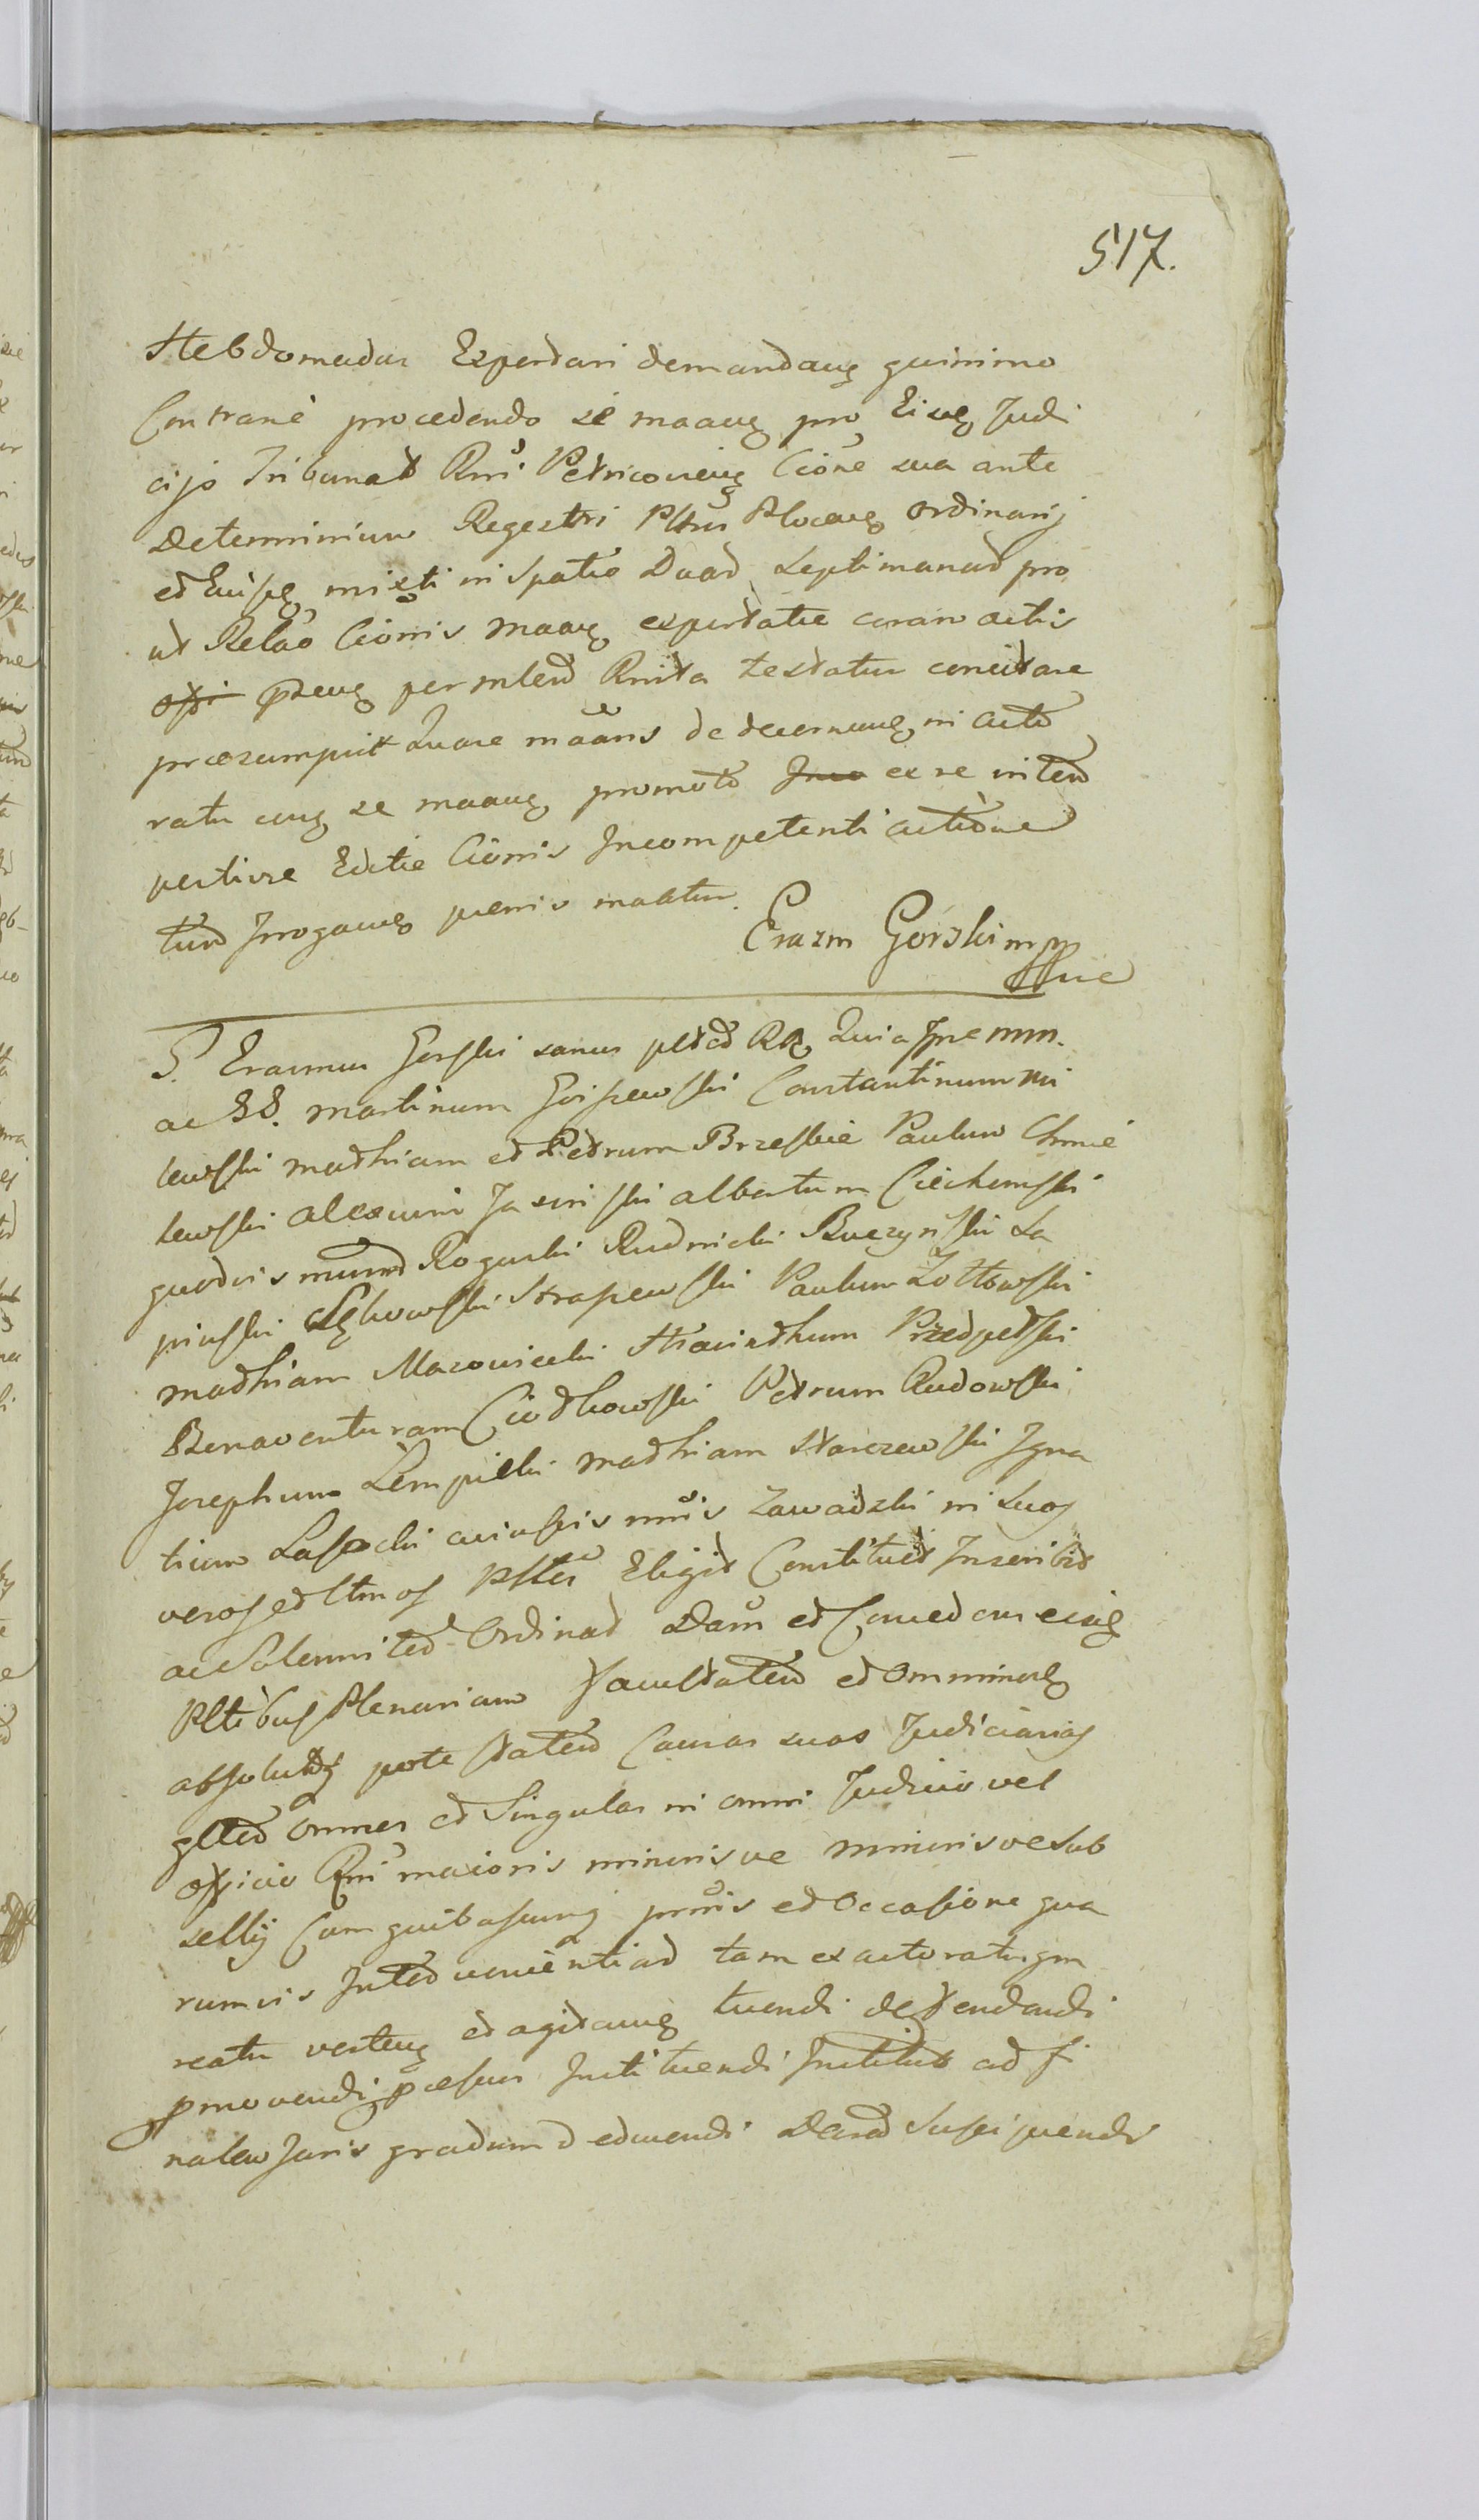 517.
Hebdomadas Expectari demandang quinimo
Contrarie procedendo se maang pro Eiusq Judi
cijs Tribunat Rni Petricovieng Cione sua ante
Determinium Regestri Pltus Plocang ordinarij
et mixti in Spatio Duad Septimanad pro
ut Relao Cionis maang expectatie coram actis
offi pzeng per mled Rnita testatur concitare
præsumpsit Quare maans de decernang in acto
ratu cung se maang promoto Juro ex re inted
pestivæ Editæ Cionis Incompetenti
tund Irrogang penis mactur.
Erazm Górski mp
G. Erasmus Gorski sanus Quia mm.
ac GG. Martinum Constantinum Mi
lewski Mathiam et Petrum Brzeskie Paulum Chmie
lewski Jasinski albertum Ciechomski
Rogaski Rudnicki Buczynski La
pinski Sękowski Straszewski Paulum Zołtowski
Mathiam Mazowiecki Hiacinthum Przedpełski
Benaventuram Ciotkowski Petrum Rudowski
Josephum Lempicki Mathiam Starczewski Igna
tium Lasocki cuiusvis nnis Zawadzki in Suos
veros et ltmos Pltes Eligit Constituit Inscribit
ac Solennited Ordinat Dans et Conced ens eisd
Pltibus Plenariam facultated et Omnimod
absolutg potestated Causas suas Judiciarias
glted Omnes et Singulas in omni Judicio vel
officio Rni maioris minoris ve minoris ve Sub
sellij Cum quibusvng pnnis et Occasione qua
rumvis Inted venientiad tam ex actoratu qm
reatu verteng et agitang tuendi defendendi
pmovendi pcesus Instituendi Institut ad fi
nalem Juris gradum d educendi Dand Suscipiendi